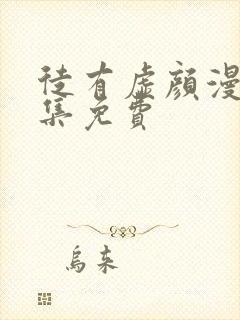 徒有虛顏漫
集免費
烏來